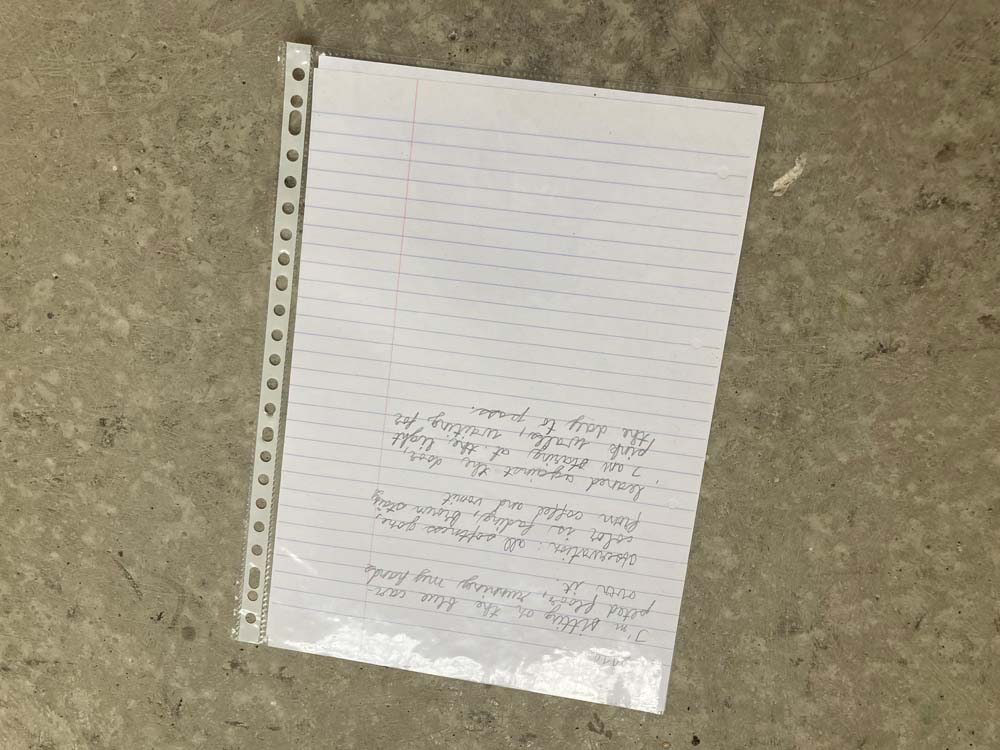 I'm sitting on the blue car
peted floor, running my hands
over it.
observation: all softness gone,
color is fading, brown stains
from coffee and vomit
leaned against the door,
I am staring at the light
pink walls, waiting for
the day to pass.